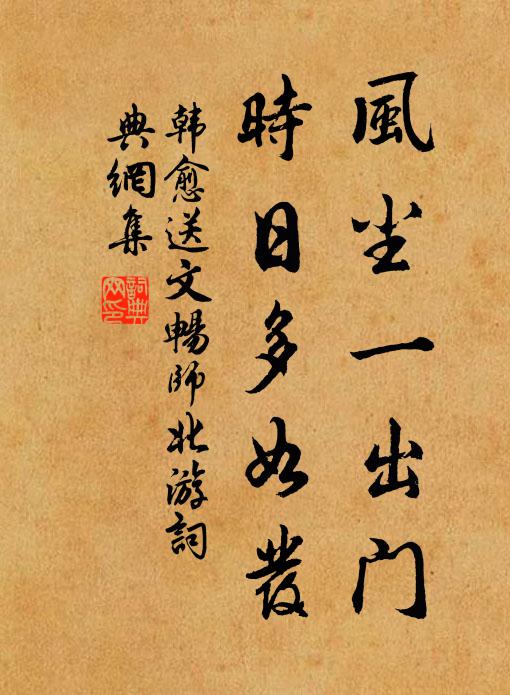 風尘一出门
時日多如發
韩愈送文暢師北游詞
典網集
詞典網印